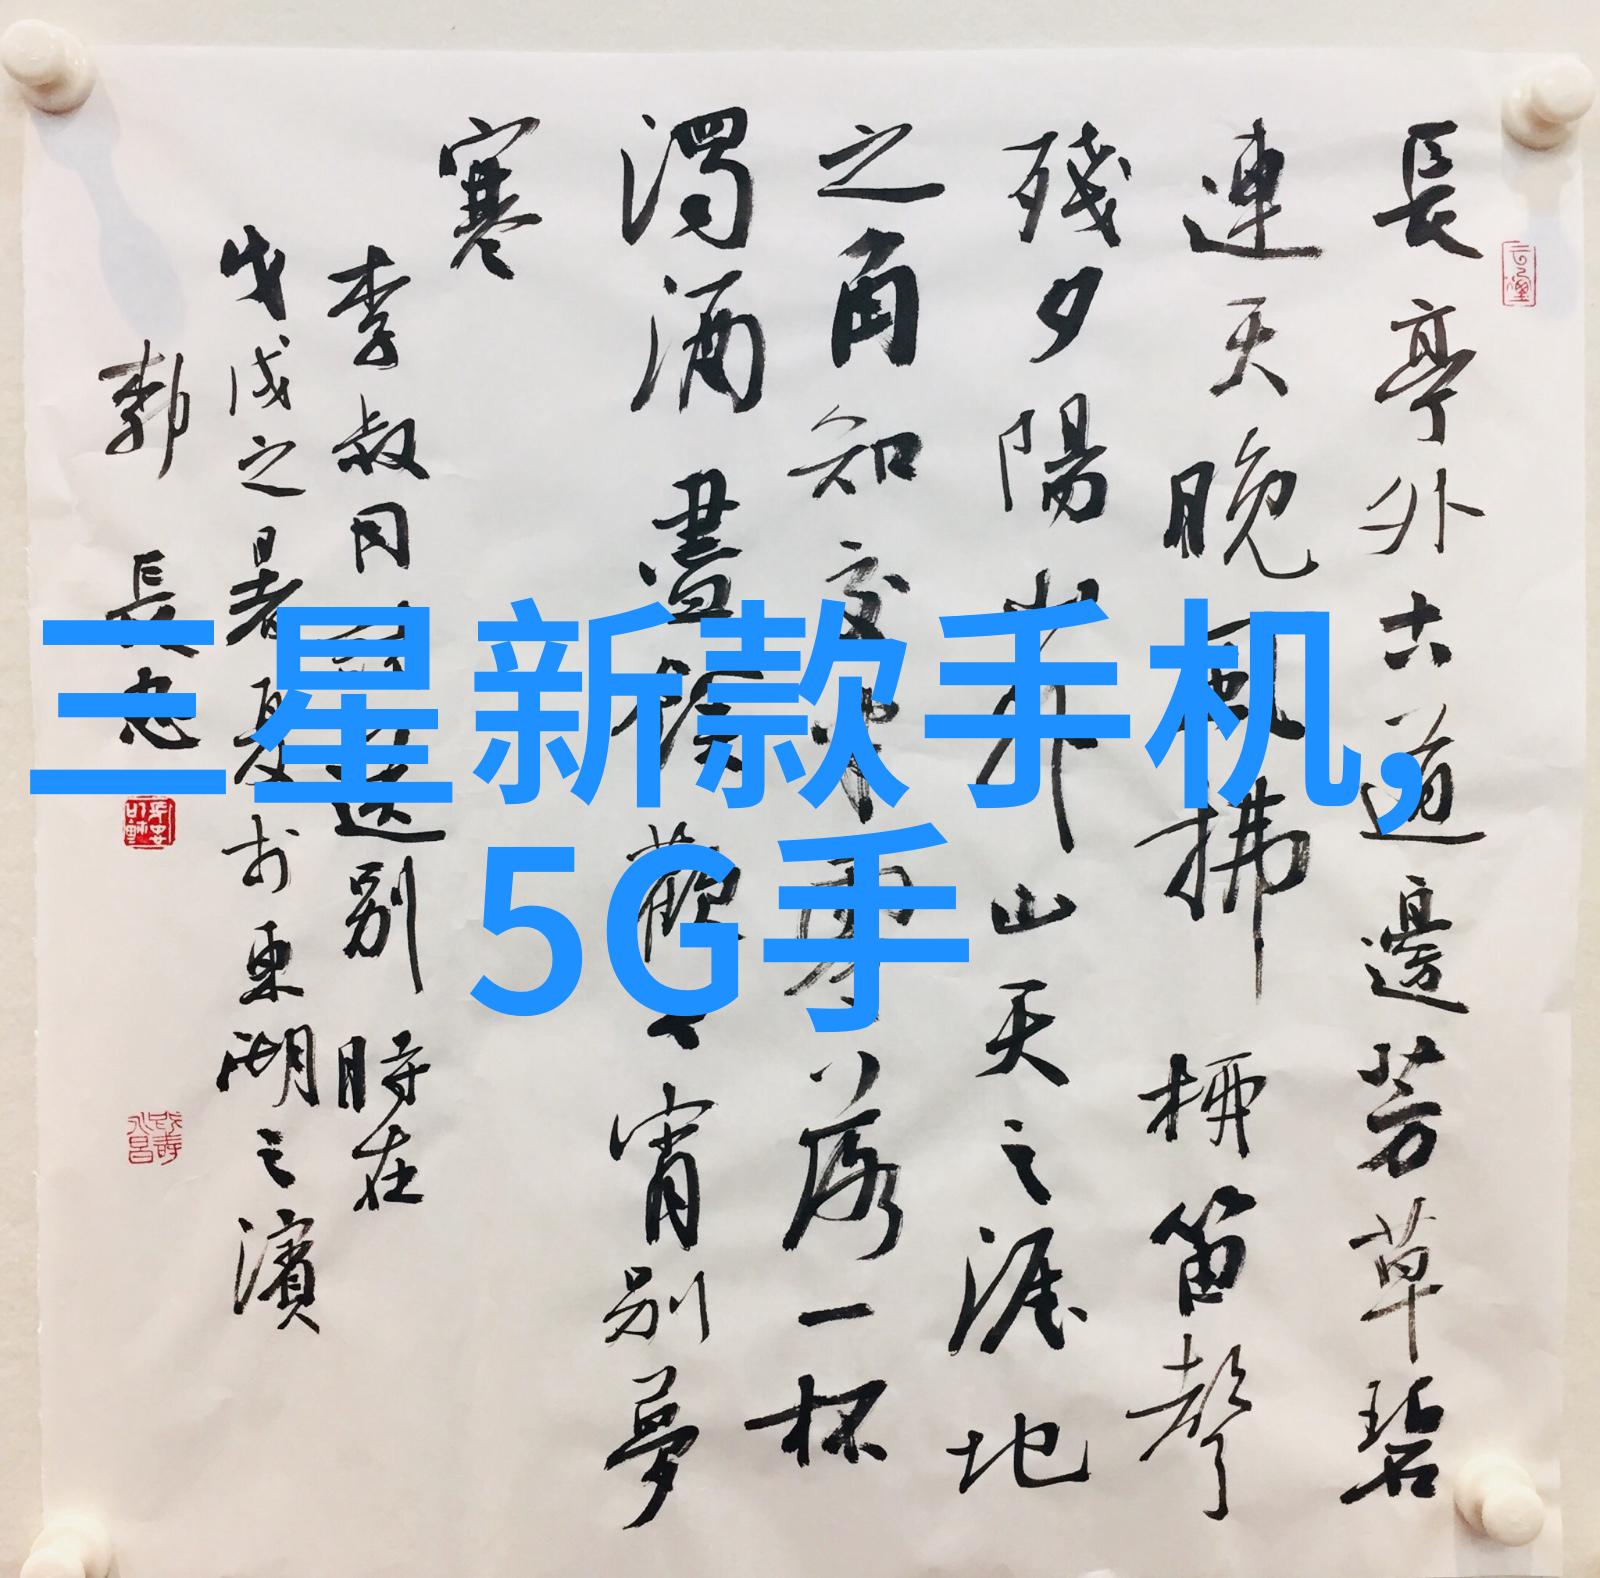 三星新款手机,
5G手
長亭外古道邊芳草碧
連天晚風拂柳笛聲
殘夕陽山外山天之涯地
之角知交半零落一杯
濁酒盡餘歡今宵別夢
寒
李叔同送別 時在
戊戌之暑夏於東湖之濱
長忠